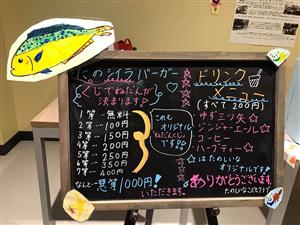 このシイラバーガー
くじでねだんが
決まります?
1等…無料
2等…100円
3等…150円
4等…200円
5等…250円
6等…350円
7等…400円
なんと…悪等1000円!
いただきます。
これも
オリジナル
ねだんくじ
です!!
ドリンク
メニュー
(すべて200円)
☆ゆず三ツ矢☆
☆ジンジャーエール☆
☆コーヒー
☆ハーブティー☆
はたのしいな
オリジナルです
ありがとうございます